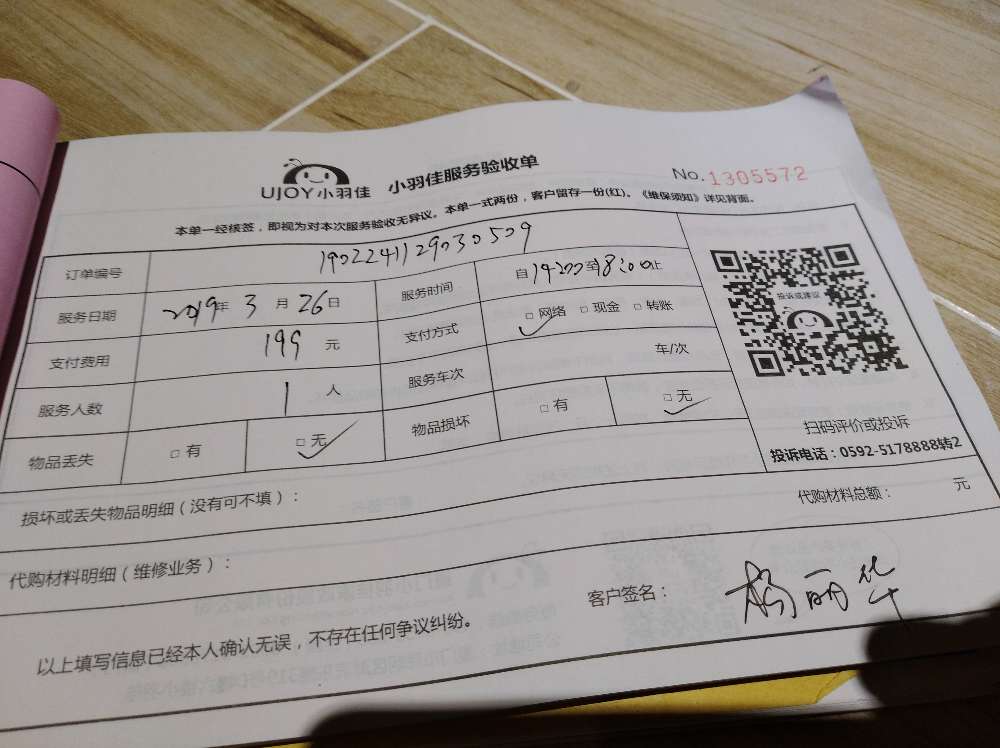 UJOY小羽佳 小羽佳服务验收单 No.1305572
本单一经核签，即视为对本次服务验收无异议。本单一式两份，客户留存一份(红)。《维保须知》详见背面。
订单编号 1902241129030509
服务日期 2019年 3 月 26 日 服务时间 自14:00至18:00止
支付费用 199 元 支付方式 □ 网络 □ 现金 □ 转账
服务人数 1 人 服务车次 车/次
物品丢失 □ 有 □ 无 物品损坏 □ 有 □ 无
投诉或建议
扫码评价或投诉
投诉电话：0592-5178888转2
损坏或丢失物品明细（没有可不填）：
代购材料总额： 元
代购材料明细（维修业务）：
以上填写信息已经本人确认无误，不存在任何争议纠纷。
客户签名： 杨丽华